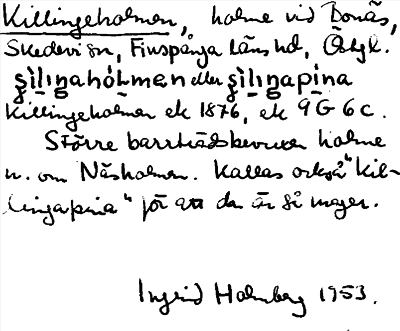 Killingeholmen, holme vid Bonäs,
Skedevi sn, Finspånga läns hd, Östgl.
şi̱li̱ŋahólmen eller şi̱li̱ŋapi̱na
Killingeholmen ek 1876, ek 9G 6c.
Större barrträdsbevuxen holme
n. om Näsholmen. Kallas också "Kil-
lingapina" för att den är så mager.
Ingrid Holmberg 1953.